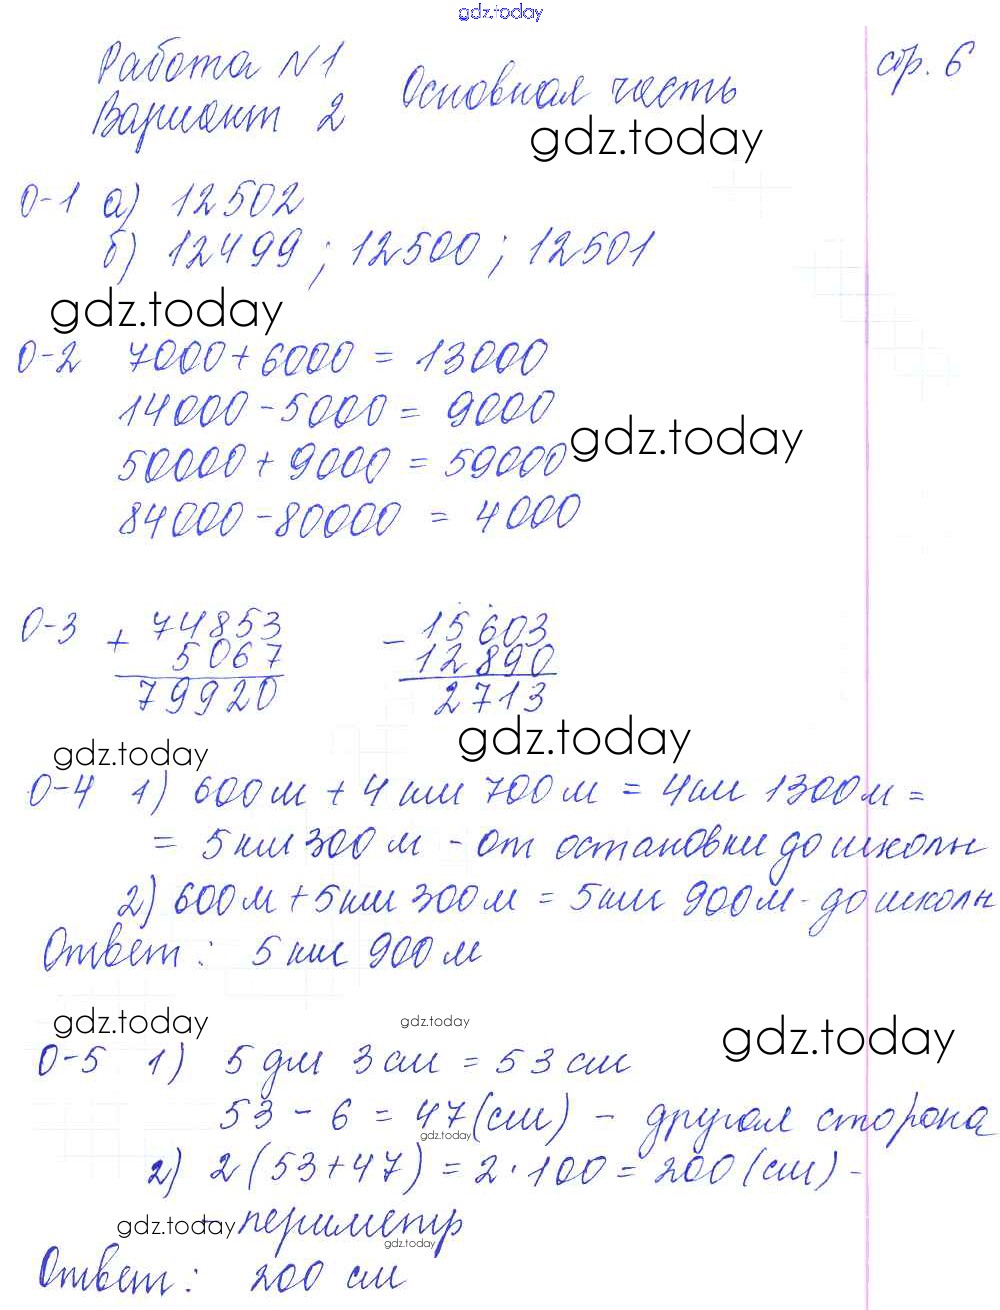 gdz.today
Работа №1 стр. 6
Вариант 2 Основная часть
gdz.today
0-1 а) 12502
б) 12499 ; 12500 ; 12501
gdz.today
0-2 7000 + 6000 = 13000
14000 - 5000 = 9000
gdz.today
50000 + 9000 = 59000
84000 - 80000 = 4000
0-3 + 74853 - 15603
5067 12890
79920 2713
gdz.today gdz.today
0-4 1) 600 м + 4 км 700 м = 4 км 1300 м =
= 5 км 300 м - от остановки до школы
2) 600 м + 5 км 300 м = 5 км 900 м - до школы
Ответ : 5 км 900 м
gdz.today gdz.today gdz.today
0-5 1) 5 дм 3 см = 53 см
53 - 6 = 47 (см) - другая сторона
gdz.today
2) 2 (53 + 47) = 2 · 100 = 200 (см) -
gdz.today - периметр
gdz.today
Ответ : 200 см